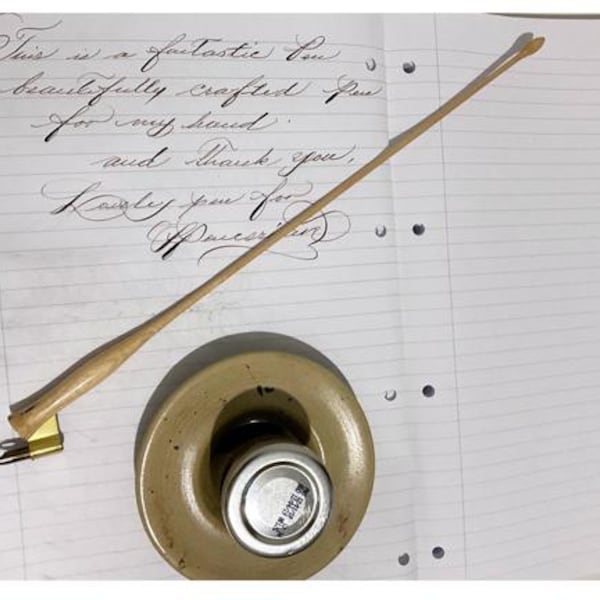 This is a fantastic Pen
beautifully crafted Pen
for my hand.
and thank you,
Lovely pen for